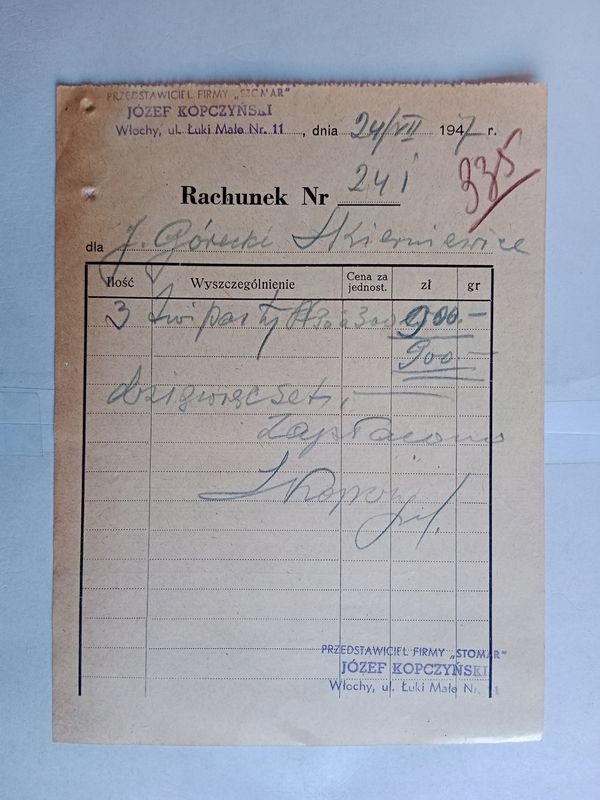 PRZEDSTAWICIEL FIRMY „STOMAR"
JÓZEF KOPCZYŃSKI
Włochy, ul. Łuki Małe Nr. 11, dnia 24/VII 1947 r.
335
Rachunek Nr 241
dla J. Górecki Skierniewice
Ilość Wyszczególnienie Cena za jednost. zł gr
3 pasty 300 900.—
900 —
dziewięćset,—
Zapłacono
PRZEDSTAWICIEL FIRMY „STOMAR"
JÓZEF KOPCZYŃSKI
Włochy, ul. Łuki Małe Nr. 11